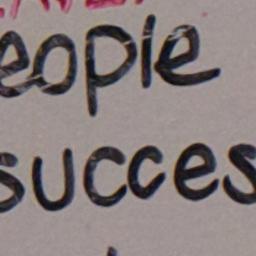 eople
succes